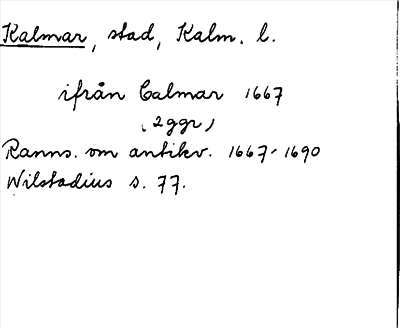 Kalmar, stad, Kalm. l.
ifrån Calmar 1667
(2 ggr)
Ranns. om antikv. 1667-1690
Wilstadius s. 77.